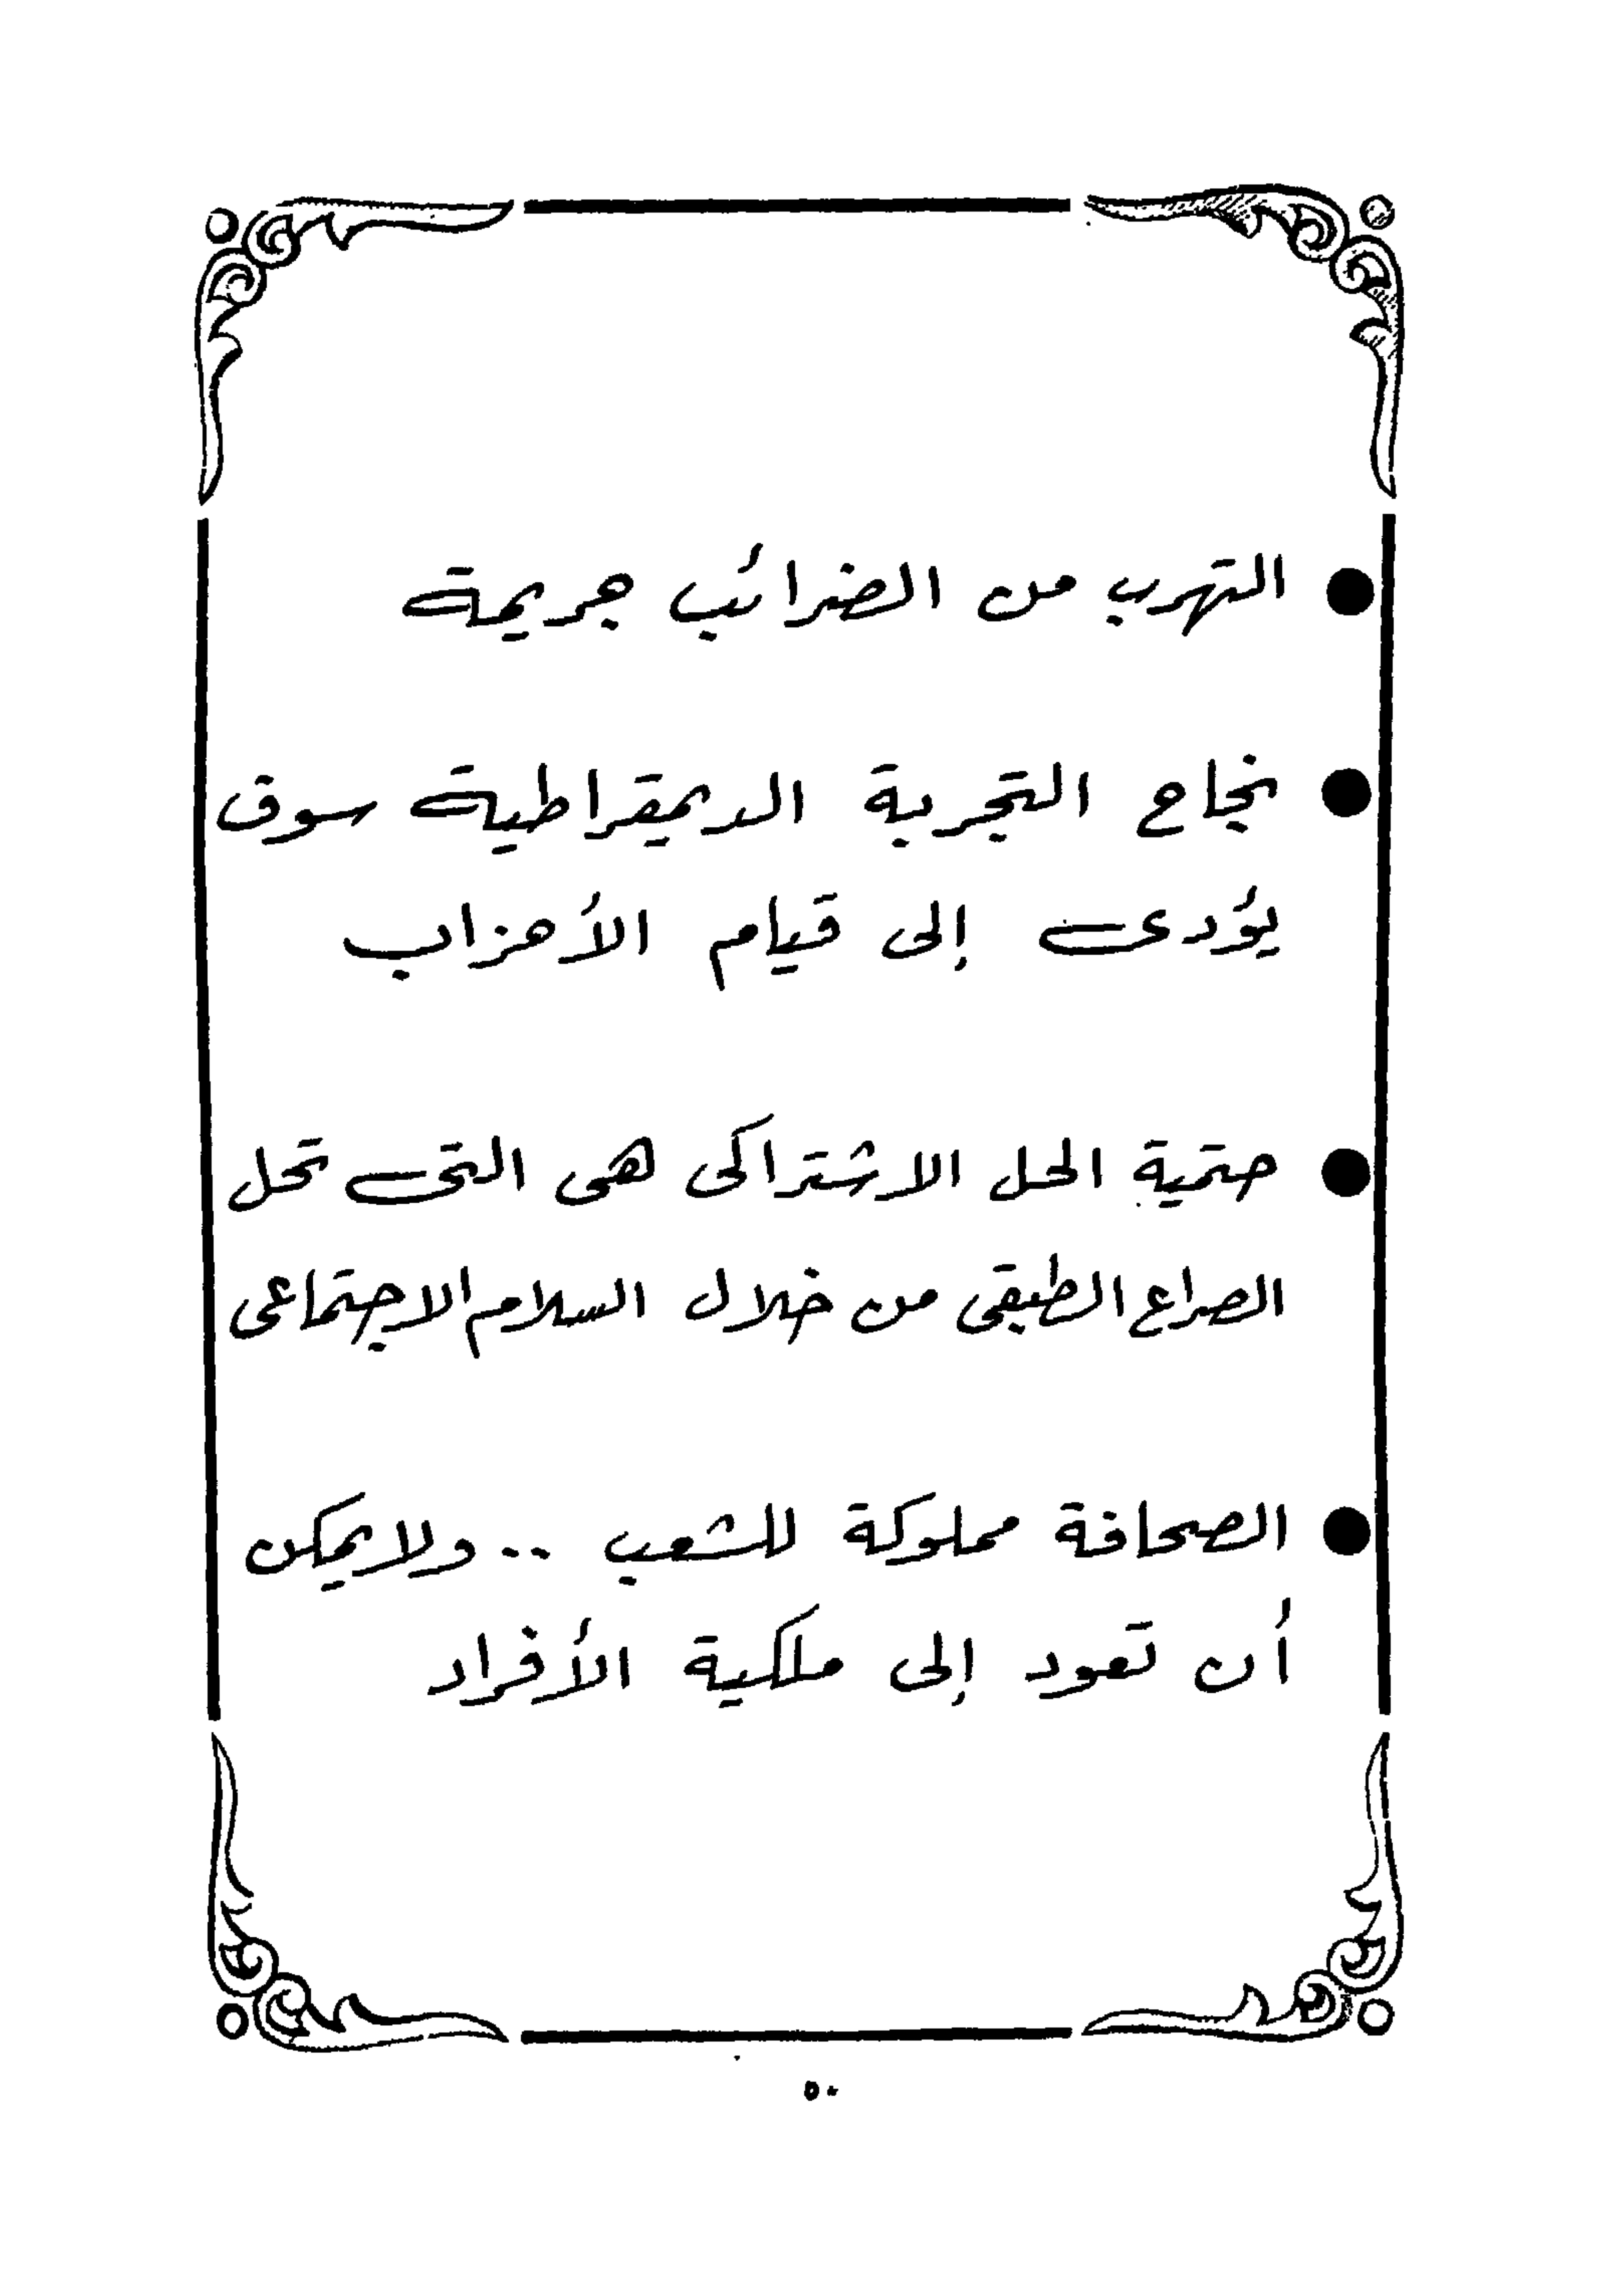 ● التهرب من الضرائب جريمة
● نجاح التجربة الديمقراطية سوف
يؤدى إلى قيام الأحزاب
● حتمية الحل الاشتراكى هى التى تحل
الصراع الطبقى من خلال السلام الاجتماعى
● الصحافة مملوكة للشعب .. ولا يمكن
أن تعود إلى ملكية الأفراد
٥٠